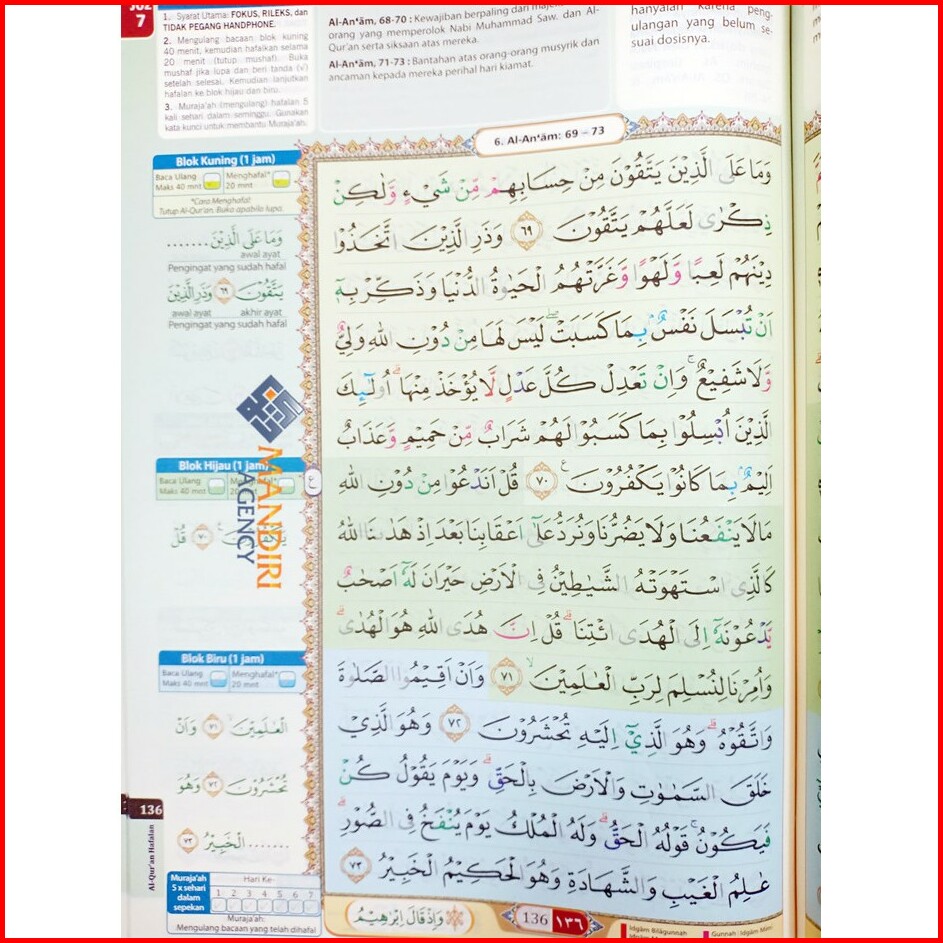 JUZ
7
1. Syarat Utama: FOKUS, RILEKS, dan
TIDAK PEGANG HANDPHONE.
2. Mengulang bacaan blok kuning
40 menit, kemudian hafalkan selama
20 menit (tutup mushaf). Buka
mushaf jika lupa dan beri tanda (√)
setelah selesai. Kemudian lanjutkan
hafalan ke blok hijau dan biru.
3. Muraja'ah (mengulang) hafalan 5
kali sehari dalam seminggu. Gunakan
kata kunci untuk membantu Muraja'ah.
Al-An'ām, 68-70 : Kewajiban berpaling dari
orang yang memperolok Nabi Muhammad Saw. dan Al-
Qur'an serta siksaan atas mereka.
Al-An'ām, 71-73 : Bantahan atas orang-orang musyrik dan
ancaman kepada mereka perihal hari kiamat.
hanyalah karena peng-
ulangan yang belum se-
suai dosisnya.
6. Al-An'ām: 69 – 73
وَمَا عَلَى الَّذِيْنَ يَتَّقُوْنَ مِنْ حِسَابِهِمْ مِّنْ شَيْءٍ وَّلٰكِنْ
ذِكْرٰى لَعَلَّهُمْ يَتَّقُوْنَ ٦٩ وَذَرِ الَّذِيْنَ اتَّخَذُوْا
دِيْنَهُمْ لَعِبًا وَّلَهْوًا وَّغَرَّتْهُمُ الْحَيٰوةُ الدُّنْيَا وَذَكِّرْ بِهٖٓ
اَنْ تُبْسَلَ نَفْسٌۢ بِمَا كَسَبَتْۖ لَيْسَ لَهَا مِنْ دُوْنِ اللّٰهِ وَلِيٌّ
وَّلَا شَفِيْعٌۚ وَاِنْ تَعْدِلْ كُلَّ عَدْلٍ لَّا يُؤْخَذْ مِنْهَاۗ اُولٰۤىِٕكَ
الَّذِيْنَ اُبْسِلُوْا بِمَا كَسَبُوْا لَهُمْ شَرَابٌ مِّنْ حَمِيْمٍ وَّعَذَابٌ
اَلِيْمٌۢ بِمَا كَانُوْا يَكْفُرُوْنَ ࣖ ٧٠ قُلْ اَنَدْعُوْا مِنْ دُوْنِ اللّٰهِ
مَا لَا يَنْفَعُنَا وَلَا يَضُرُّنَا وَنُرَدُّ عَلٰٓى اَعْقَابِنَا بَعْدَ اِذْ هَدٰىنَا اللّٰهُ
كَالَّذِى اسْتَهْوَتْهُ الشَّيٰطِيْنُ فِى الْاَرْضِ حَيْرَانَ لَهٗٓ اَصْحٰبٌ
يَّدْعُوْنَهٗٓ اِلَى الْهُدَى ائْتِنَاۗ قُلْ اِنَّ هُدَى اللّٰهِ هُوَ الْهُدٰىۗ
وَاُمِرْنَا لِنُسْلِمَ لِرَبِّ الْعٰلَمِيْنَۙ ٧١ وَاَنْ اَقِيْمُوا الصَّلٰوةَ
وَاتَّقُوْهُۗ وَهُوَ الَّذِيْٓ اِلَيْهِ تُحْشَرُوْنَ ٧٢ وَهُوَ الَّذِيْ
خَلَقَ السَّمٰوٰتِ وَالْاَرْضَ بِالْحَقِّۗ وَيَوْمَ يَقُوْلُ كُنْ
فَيَكُوْنُۚ قَوْلُهُ الْحَقُّۗ وَلَهُ الْمُلْكُ يَوْمَ يُنْفَخُ فِى الصُّوْرِۗ
عٰلِمُ الْغَيْبِ وَالشَّهَادَةِ وَهُوَ الْحَكِيْمُ الْخَبِيْرُ ٧٣
Blok Kuning (1 jam)
Baca Ulang
Maks 40 mnt
Menghafal*
20 mnt
*Cara Menghafal:
Tutup Al-Qur'an, Buka apabila lupa.
وَمَا عَلَى الَّذِيْنَ.......
awal ayat
Pengingat yang sudah hafal
يَتَّقُوْنَ ٦٩ وَذَرِ الَّذِيْنَ
awal ayat akhir ayat
Pengingat yang sudah hafal
MANDIRI
AGENCY
Blok Hijau (1 jam)
Baca Ulang
Maks 40 mnt
20 mnt
يَكْفُرُوْنَ ࣖ ٧٠ قُلْ
ع
Blok Biru (1 jam)
Baca Ulang
Maks 40 mnt
Menghafal*
20 mnt
الْعٰلَمِيْنَۙ ٧١ وَاَنْ
تُحْشَرُوْنَ ٧٢ وَهُوَ
....... الْخَبِيْرُ ٧٣
136
Al-Qur'an Hafalan
Muraja'ah
5 x sehari
dalam
sepekan
Hari Ke-
1 2 3 4 5 6 7
Muraja'ah:
Mengulang bacaan yang telah dihafal
وَاِذْ قَالَ اِبْرٰهِيْمُ
136 ١٣٦
Idgām Bilāgunnah
Gunnah : Idgām Mimi